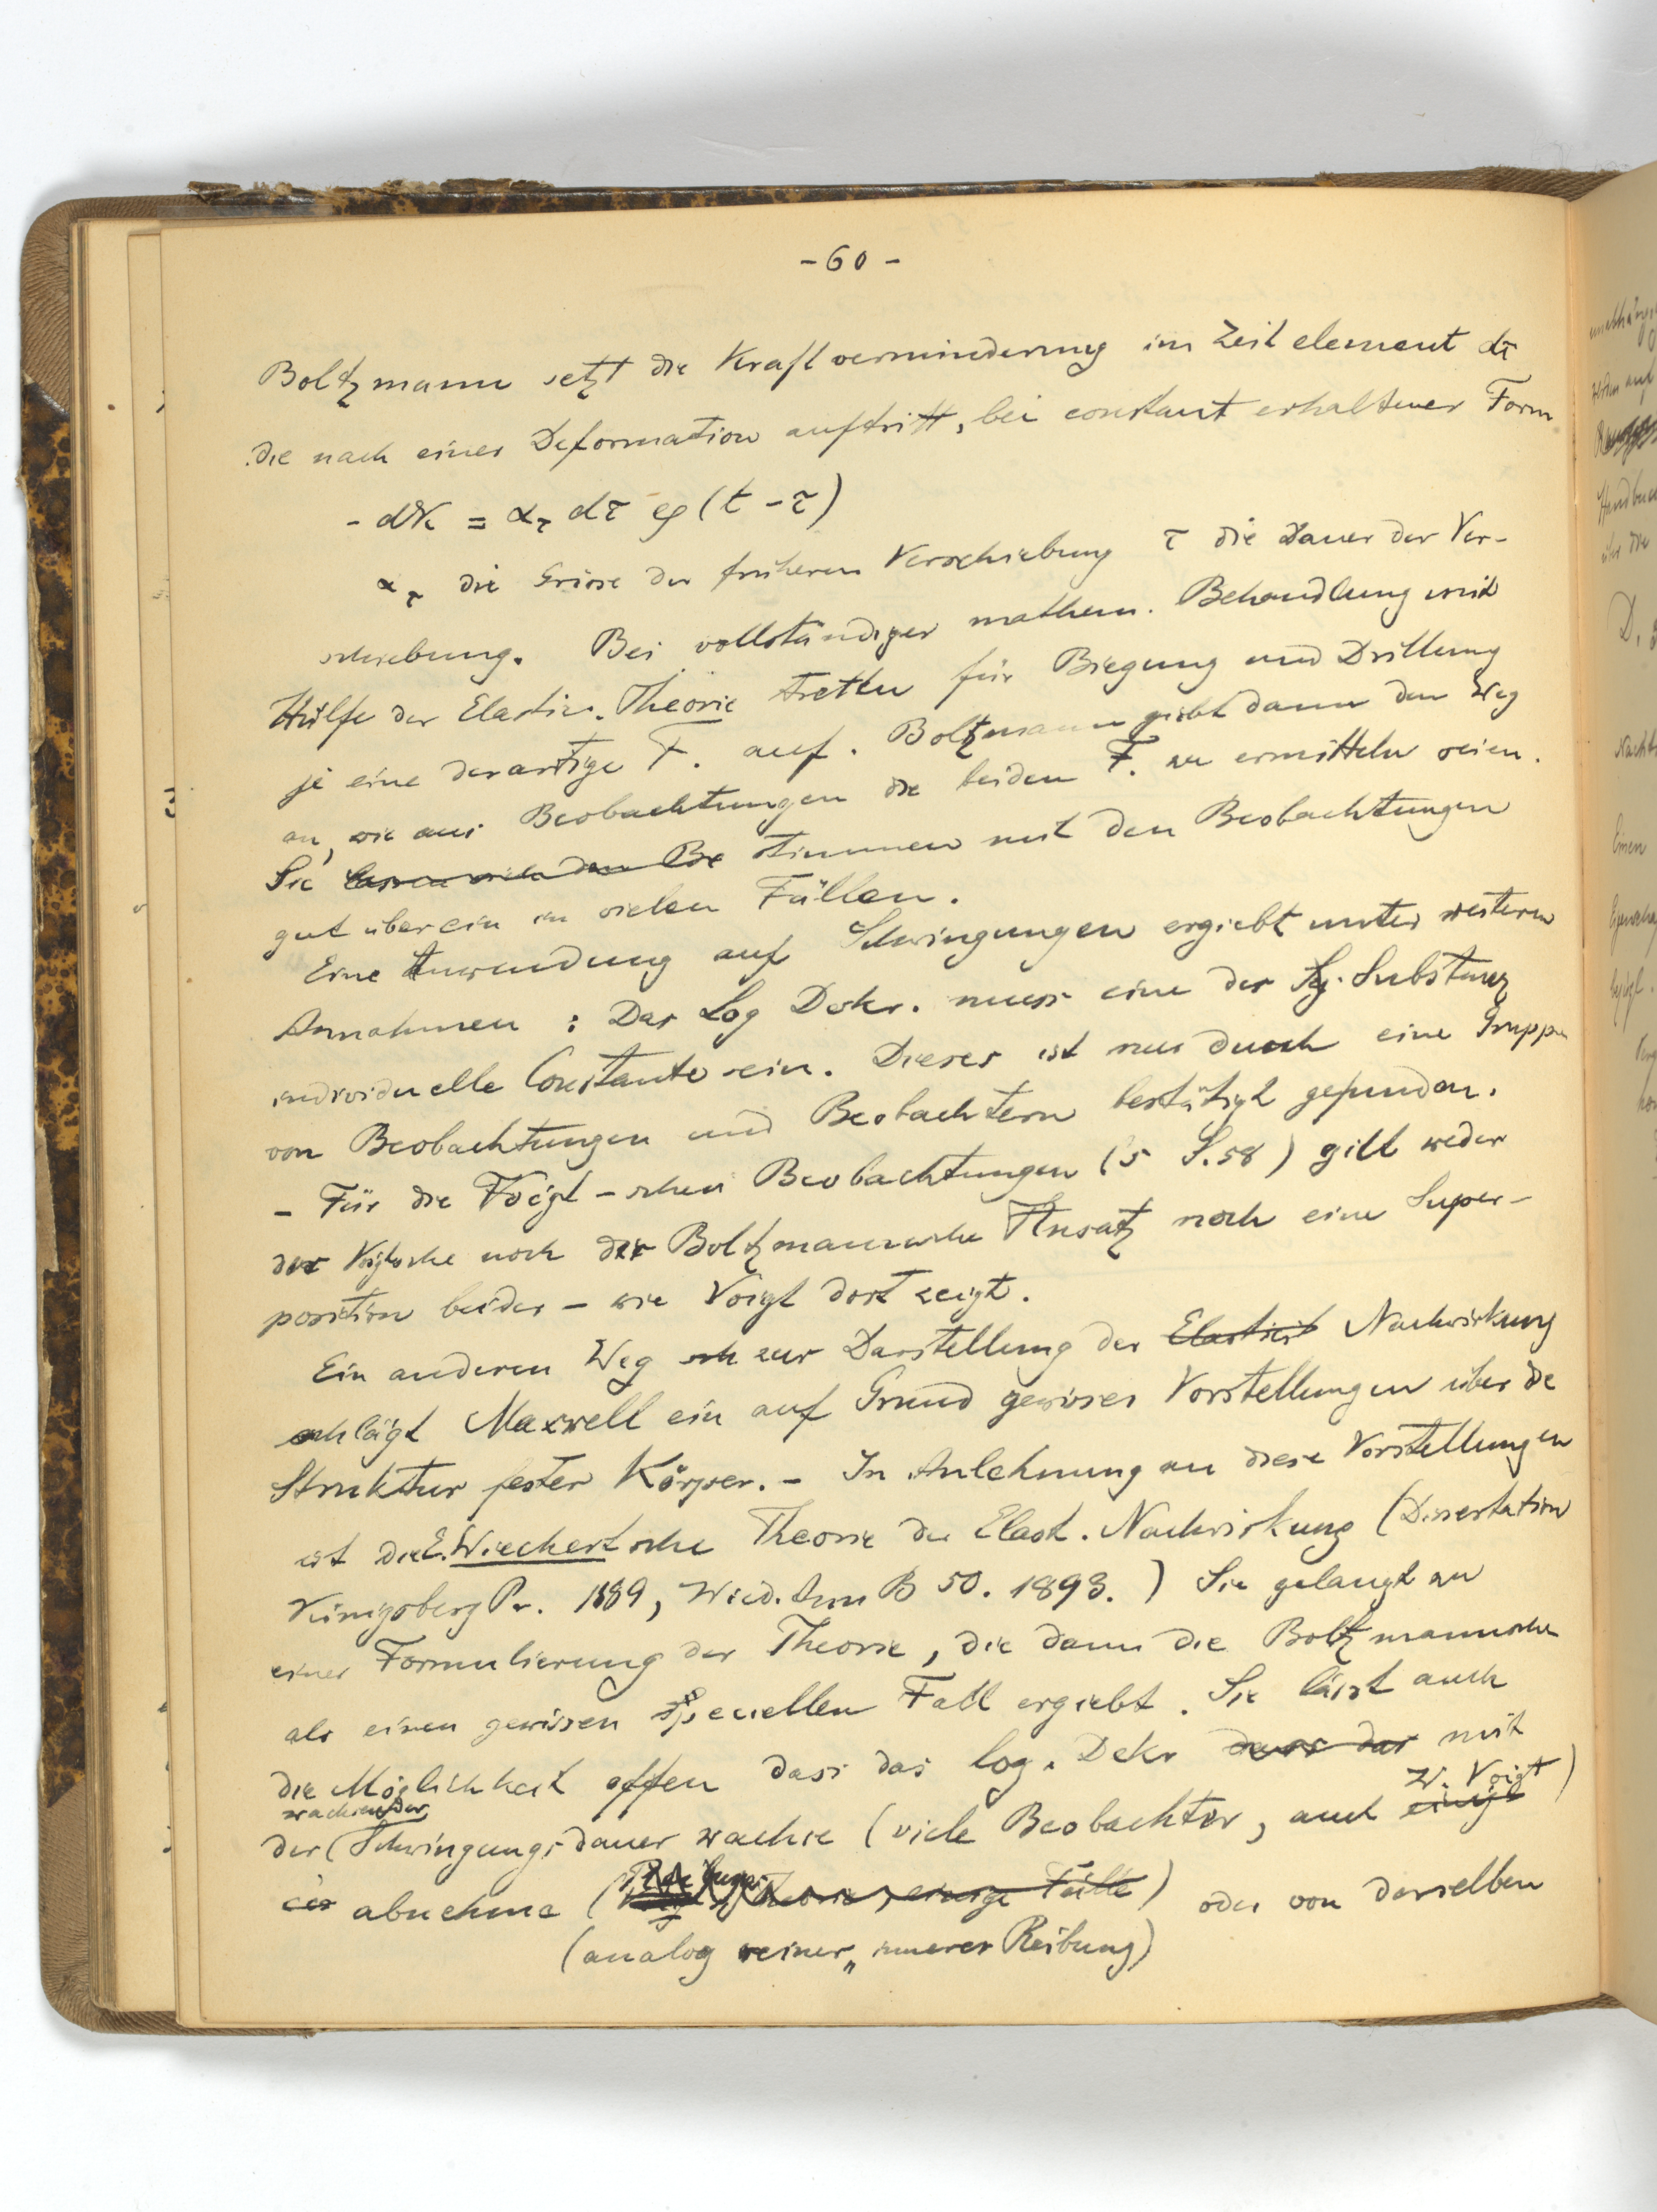 - 60 -
Boltzmann setzt die Kraftverminderung im Zeitelement dτ
die nach einer Deformation auftritt, bei constant erhaltener Form
- dK = α_τ dτ φ(t - τ)
α_τ die Grösse der früheren Verschiebung τ die Dauer der Ver-
schiebung. Bei vollständiger mathem. Behandlung mit
Hülfe der Elastic. Theorie treten für Biegung und Drillung
je eine derartige F. auf. Boltzmann giebt dann den Weg
an, wie aus Beobachtungen die beiden F. zu ermitteln seien.
Sie stimmen mit den Beobachtungen
gut überein in vielen Fällen.
Eine Anwendung auf Schwingungen ergiebt unter weiteren
Annahmen : Das Log Dekr. muss eine der Substanz
individuelle Constante sein. Dieses ist nur durch eine Gruppe
von Beobachtungen und Beobachtern bestätigt gefunden.
- Für die Voigt-schen Beobachtungen (S S. 58) gilt weder
der Voigtsche noch der Boltzmannsche Ansatz noch eine Super-
position beider - wie Voigt dort zeigt.
Ein anderen Weg zur Darstellung der Elasticit Nachwirkung
schlägt Maxwell ein auf Grund gewisser Vorstellungen über die
Struktur fester Körper. - In Anlehnung an diese Vorstellungen
ist die E. Wiechertsche Theorie der Elast. Nachwirkung (Dissertation
Königsberg Pr. 1889, Wied. Ann B 50. 1893.) Sie gelangt zu
einer Formulierung der Theorie, die dann die Boltzmannsche
als einen gewissen speciellen Fall ergiebt. Sie lässt auch
die Möglichkeit offen dass das log. Dekr dass das mit
wachsender W. Voigt)
der (Schwingungsdauer wachse (viele Beobachter, auch einige
abnehme ( Theorie, einige Fälle) oder von derselben
(analog seiner „innerer Reibung)